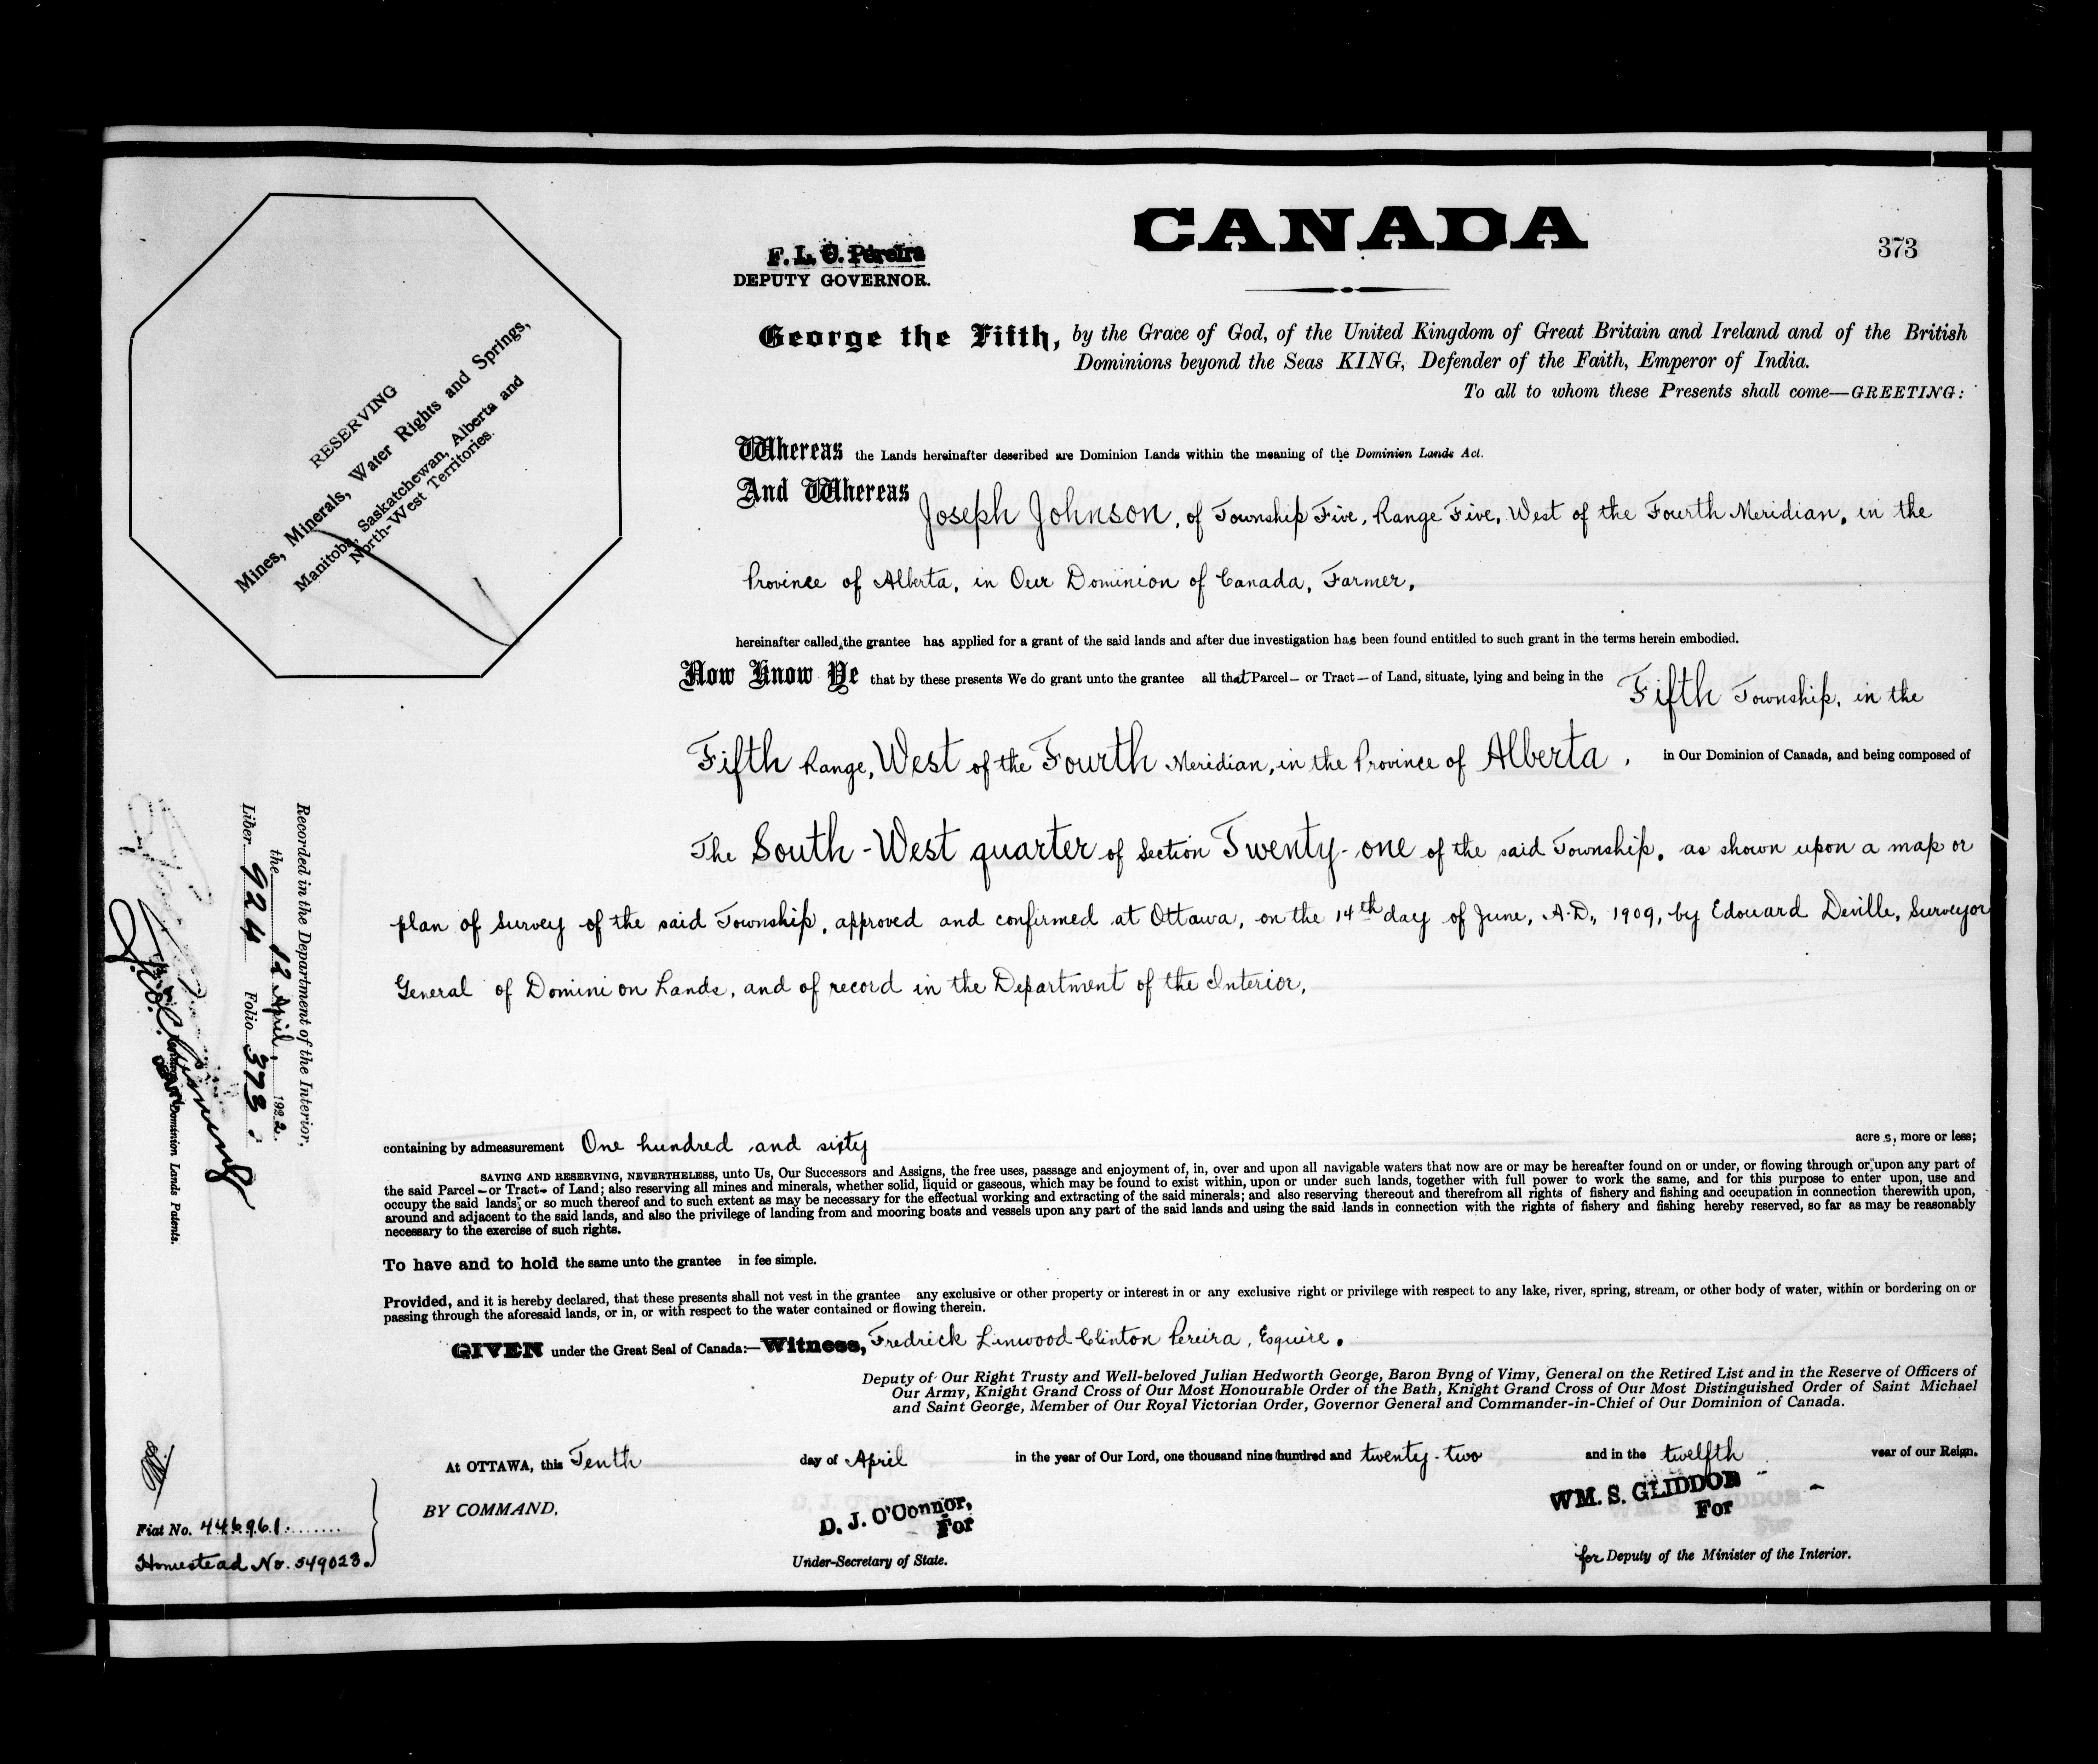 CANADA
373
F. L. C. Pereira
DEPUTY GOVERNOR.
RESERVING
Mines, Minerals, Water Rights and Springs,
Manitoba, Saskatchewan, Alberta and
North-West Territories.
George the Fifth, by the Grace of God, of the United Kingdom of Great Britain and Ireland and of the British
Dominions beyond the Seas KING, Defender of the Faith, Emperor of India.
To all to whom these Presents shall come—GREETING:
Whereas the Lands hereinafter described are Dominion Lands within the meaning of the Dominion Lands Act.
And Whereas Joseph Johnson, of Township Five, Range Five, West of the Fourth Meridian, in the
Province of Alberta, in Our Dominion of Canada, Farmer,
hereinafter called the grantee has applied for a grant of the said lands and after due investigation has been found entitled to such grant in the terms herein embodied.
Now Know Ye that by these presents We do grant unto the grantee all that Parcel — or Tract — of Land, situate, lying and being in the Fifth Township, in the
Fifth Range, West of the Fourth Meridian, in the Province of Alberta, in Our Dominion of Canada, and being composed of
The South-West quarter of Section Twenty-one of the said Township, as shown upon a map or
plan of Survey of the said Township, approved and confirmed at Ottawa, on the 14th day of June, A.D., 1909, by Edouard Deville, Surveyor
General of Dominion Lands, and of record in the Department of the Interior,
containing by admeasurement One hundred and sixty acres, more or less;
SAVING AND RESERVING, NEVERTHELESS, unto Us, Our Successors and Assigns, the free uses, passage and enjoyment of, in, over and upon all navigable waters that now are or may be hereafter found on or under, or flowing through or upon any part of
the said Parcel — or Tract — of Land; also reserving all mines and minerals, whether solid, liquid or gaseous, which may be found to exist within, upon or under such lands, together with full power to work the same, and for this purpose to enter upon, use and
occupy the said lands, or so much thereof and to such extent as may be necessary for the effectual working and extracting of the said minerals; and also reserving thereout and therefrom all rights of fishery and fishing and occupation in connection therewith upon,
around and adjacent to the said lands, and also the privilege of landing from and mooring boats and vessels upon any part of the said lands and using the said lands in connection with the rights of fishery and fishing hereby reserved, so far as may be reasonably
necessary to the exercise of such rights.
To have and to hold the same unto the grantee in fee simple.
Provided, and it is hereby declared, that these presents shall not vest in the grantee any exclusive or other property or interest in or any exclusive right or privilege with respect to any lake, river, spring, stream, or other body of water, within or bordering on or
passing through the aforesaid lands, or in, or with respect to the water contained or flowing therein.
GIVEN under the Great Seal of Canada:—Witness, Fredrick Linwood Clinton Pereira, Esquire.
Deputy of Our Right Trusty and Well-beloved Julian Hedworth George, Baron Byng of Vimy, General on the Retired List and in the Reserve of Officers of
Our Army, Knight Grand Cross of Our Most Honourable Order of the Bath, Knight Grand Cross of Our Most Distinguished Order of Saint Michael
and Saint George, Member of Our Royal Victorian Order, Governor General and Commander-in-Chief of Our Dominion of Canada.
At OTTAWA, this Tenth day of April in the year of Our Lord, one thousand nine hundred and twenty-two and in the twelfth year of our Reign.
BY COMMAND,
D. J. O'Connor,
For
Under-Secretary of State.
WM. S. GLIDDON
For
for Deputy of the Minister of the Interior.
Recorded in the Department of the Interior,
the 12 April, 1922.
Liber 924 Folio 373.
Dominion Lands Patents.
Fiat No. 446961
Homestead No. 549023.